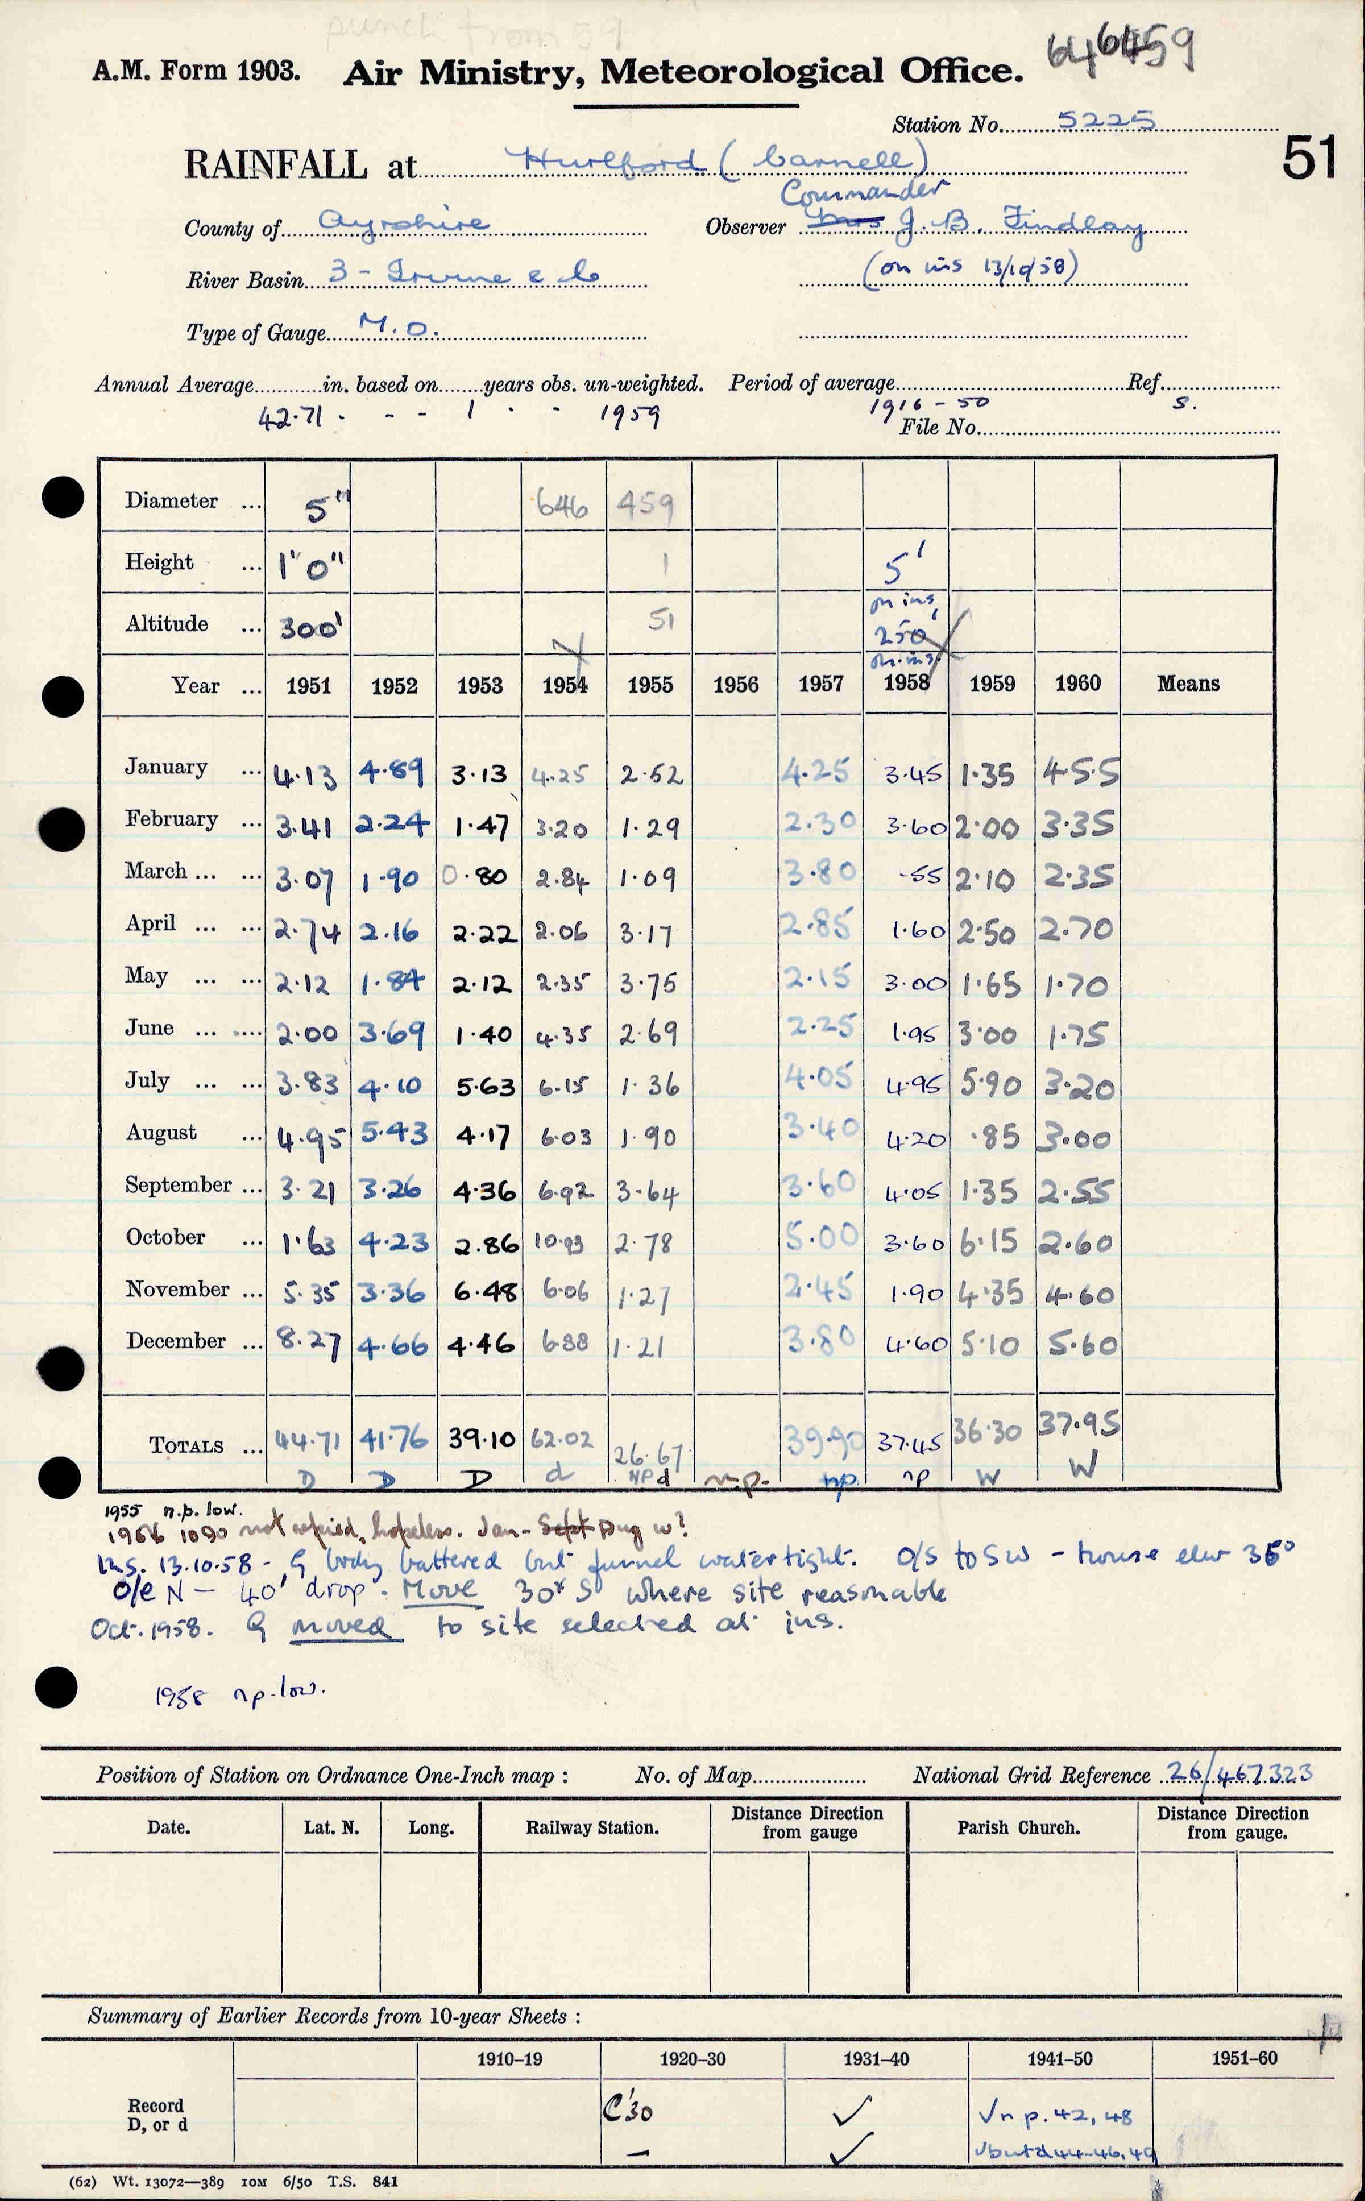 punch from 59
646459
A.M. Form 1903. Air Ministry, Meteorological Office.
Station No. 5225
51
RAINFALL at Hurlford (Carnell)
Commander
County of Ayrshire Observer Mrs J. B. Findlay
River Basin 3 - Irvine & Co (on ins 13/10/58)
Type of Gauge M.O.
Annual Average in. based on years obs. un-weighted. Period of average Ref.
42.71 . - - 1 . . 1959 1916-50 S.
File No.
Diameter ... 5" 646 459
Height ... 1'0" 1 5'
on ins
Altitude ... 300' 51 250'
on ins.
Year ... 1951 1952 1953 1954 1955 1956 1957 1958 1959 1960 Means
January ... 4.13 4.89 3.13 4.25 2.52 4.25 3.45 1.35 4.55
February ... 3.41 2.24 1.47 3.20 1.29 2.30 3.60 2.00 3.35
March ... ... 3.07 1.90 0.80 2.84 1.09 3.80 .55 2.10 2.35
April ... ... 2.74 2.16 2.22 2.06 3.17 2.85 1.60 2.50 2.70
May ... ... 2.12 1.84 2.12 2.35 3.75 2.15 3.00 1.65 1.70
June ... ... 2.00 3.69 1.40 4.35 2.69 2.25 1.95 3.00 1.75
July ... ... 3.83 4.10 5.63 6.15 1.36 4.05 4.95 5.90 3.20
August ... 4.95 5.43 4.17 6.03 1.90 3.40 4.20 .85 3.00
September ... 3.21 3.26 4.36 6.92 3.64 3.60 4.05 1.35 2.55
October ... 1.63 4.23 2.86 10.93 2.78 5.00 3.60 6.15 2.60
November ... 5.35 3.36 6.48 6.06 1.27 2.45 1.90 4.35 4.60
December ... 8.27 4.66 4.46 6.88 1.21 3.80 4.60 5.10 5.60
TOTALS ... 44.71 41.76 39.10 62.02 26.67 39.90 37.45 36.30 37.95
D D D d NP d n.p. np. np W W
1955 n.p. low.
1956 1090 not copied, hopeless. Jan - Sept Aug w?
Ins. 13.10.58 - G body battered but funnel watertight. O/S to SW - house elev 35°
O/e N - 40' drop. Move 30x S where site reasonable
Oct. 1958. G moved to site selected at ins.
1958 np. low.
Position of Station on Ordnance One-Inch map : No. of Map National Grid Reference 26/467323
Date. Lat. N. Long. Railway Station. Distance Direction from gauge Parish Church. Distance Direction from gauge.
Summary of Earlier Records from 10-year Sheets :
1910–19 1920–30 1931–40 1941–50 1951–60
Record C'30 ✓ ✓n p. 42, 48
D, or d – ✓ ✓but d 44-46, 49
(62) Wt. 13072—389 10M 6/50 T.S. 841